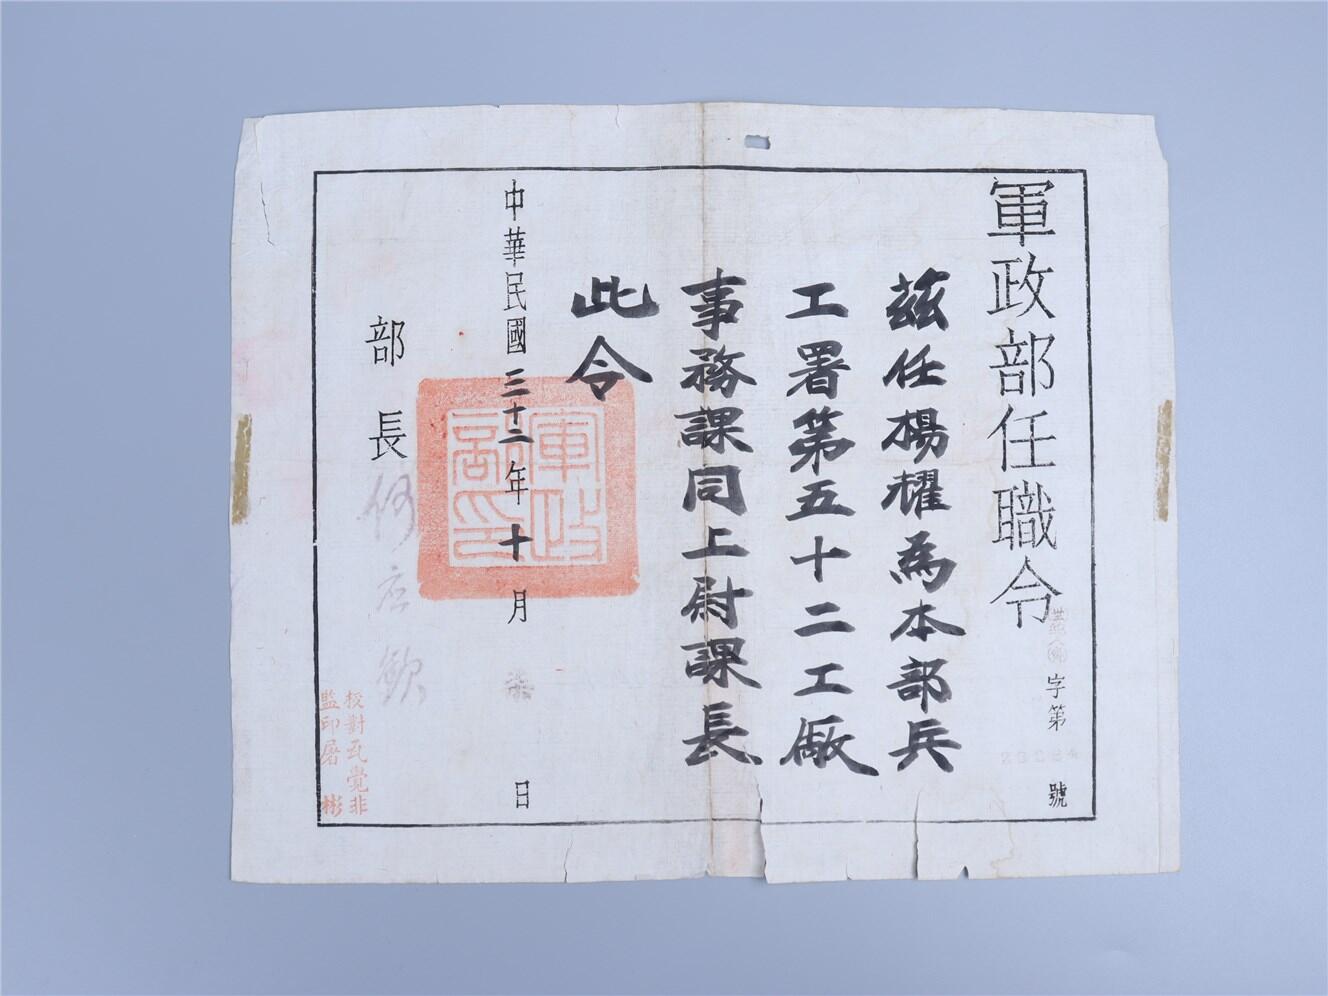 軍政部任職令
字第
號
茲任楊耀為本部兵
工署第五十二工廠
事務課同上尉課長
此令
中華民國三十二年十月
日
部長何应欽
軍政
部印
校對瓦覺非
監印屠彬